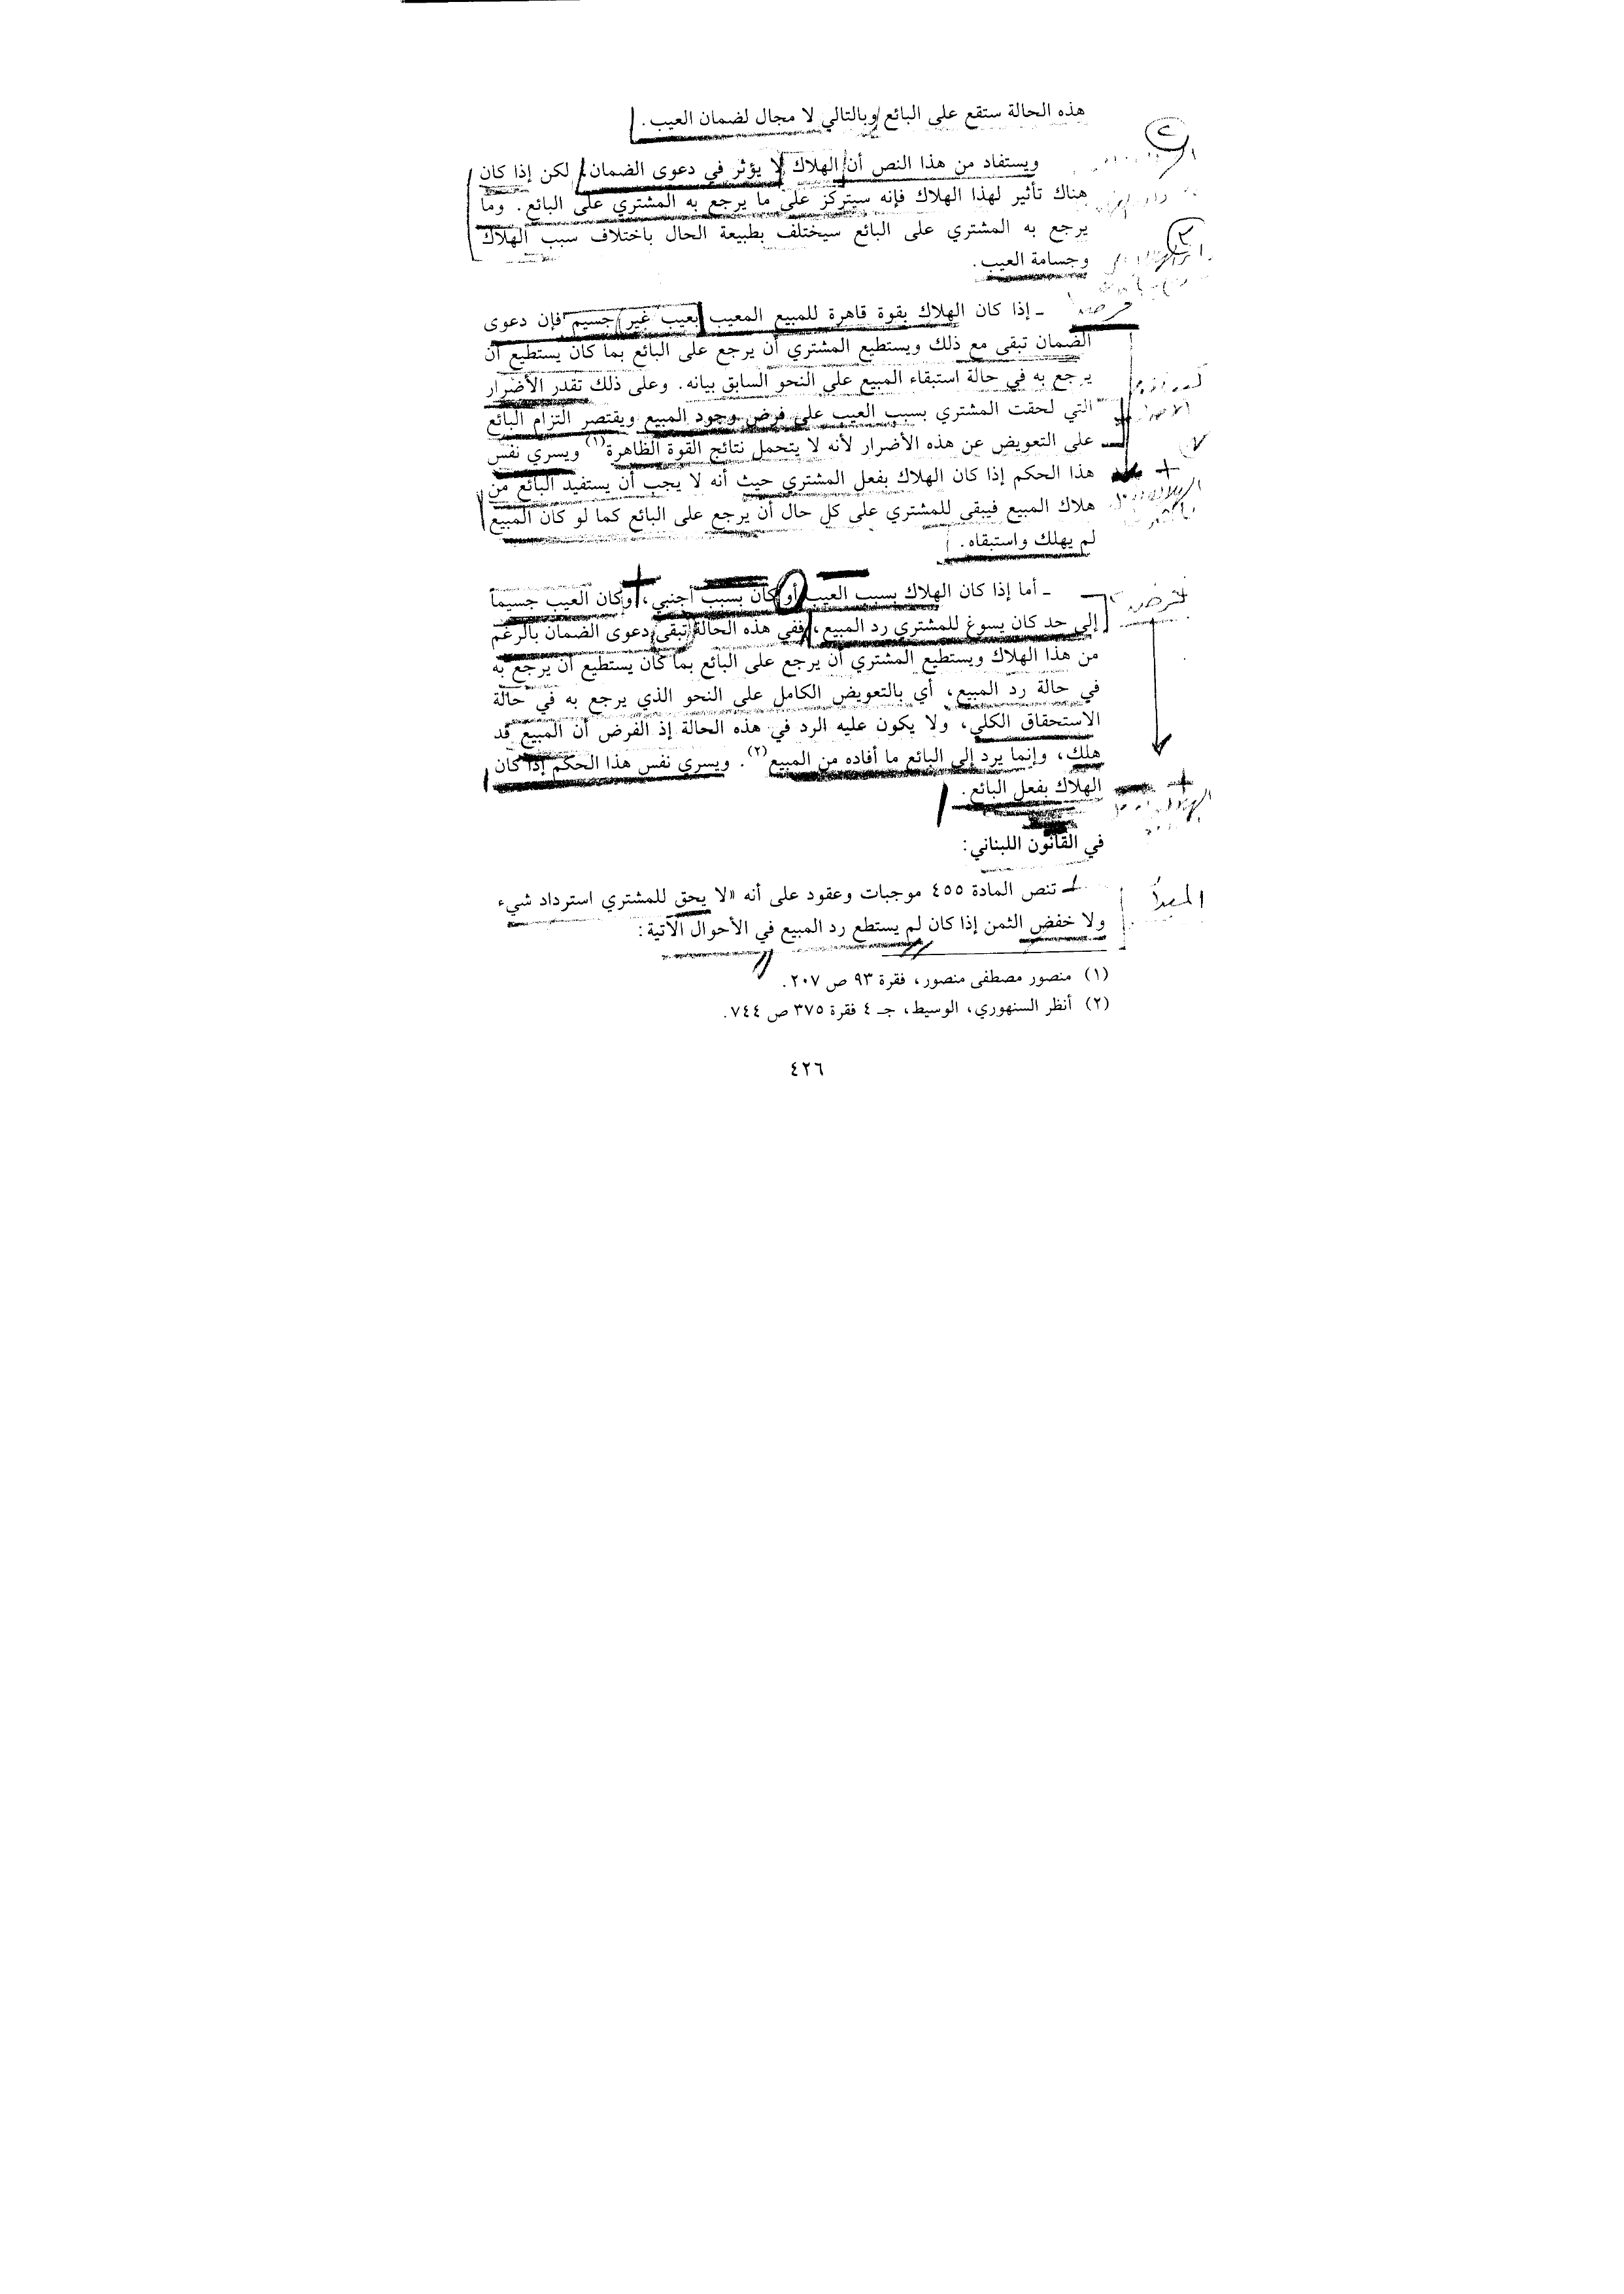 هذه الحالة ستقع على البائع وبالتالي لا مجال لضمان العيب.
ويستفاد من هذا النص أن الهلاك لا يؤثر في دعوى الضمان، لكن إذا كان
هناك تأثير لهذا الهلاك فإنه سيتركز على ما يرجع به المشتري على البائع. وما
يرجع به المشتري على البائع سيختلف بطبيعة الحال باختلاف سبب الهلاك
وجسامة العيب.
ـ إذا كان الهلاك بقوة قاهرة للمبيع المعيب بعيب غير جسيم فإن دعوى
الضمان تبقى مع ذلك ويستطيع المشتري أن يرجع على البائع بما كان يستطيع أن
يرجع به في حالة استبقاء المبيع على النحو السابق بيانه. وعلى ذلك تقدر الأضرار
التي لحقت المشتري بسبب العيب على فرض وجود المبيع ويقتصر التزام البائع
على التعويض عن هذه الأضرار لأنه لا يتحمل نتائج القوة الظاهرة(١) ويسري نفس
هذا الحكم إذا كان الهلاك بفعل المشتري حيث أنه لا يجب أن يستفيد البائع من
هلاك المبيع فيبقى للمشتري على كل حال أن يرجع على البائع كما لو كان المبيع
لم يهلك واستبقاه.
ـ أما إذا كان الهلاك بسبب العيب أو كان بسبب أجنبي، وكان العيب جسيماً
إلى حد كان يسوغ للمشتري رد المبيع، ففي هذه الحالة تبقى دعوى الضمان بالرغم
من هذا الهلاك ويستطيع المشتري أن يرجع على البائع بما كان يستطيع أن يرجع به
في حالة رد المبيع، أي بالتعويض الكامل على النحو الذي يرجع به في حالة
الاستحقاق الكلي، ولا يكون عليه الرد في هذه الحالة إذ الفرض أن المبيع قد
هلك، وإنما يرد إلى البائع ما أفاده من المبيع(٢). ويسري نفس هذا الحكم إذا كان
الهلاك بفعل البائع.
في القانون اللبناني:
ـ تنص المادة ٤٥٥ موجبات وعقود على أنه «لا يحق للمشتري استرداد شيء
ولا خفض الثمن إذا كان لم يستطع رد المبيع في الأحوال الآتية:
(١) منصور مصطفى منصور، فقرة ٩٣ ص ٢٠٧.
(٢) أنظر السنهوري، الوسيط، جـ ٤ فقرة ٣٧٥ ص ٧٤٤.
٤٢٦